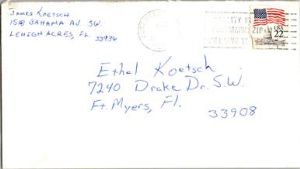 James Koetsch
Bahama Av. SW.
Lehigh Acres, FL. 33936
22
Ethel Koetsch
7240 Drake Dr. S.W.
Ft Myers, Fl.
33908